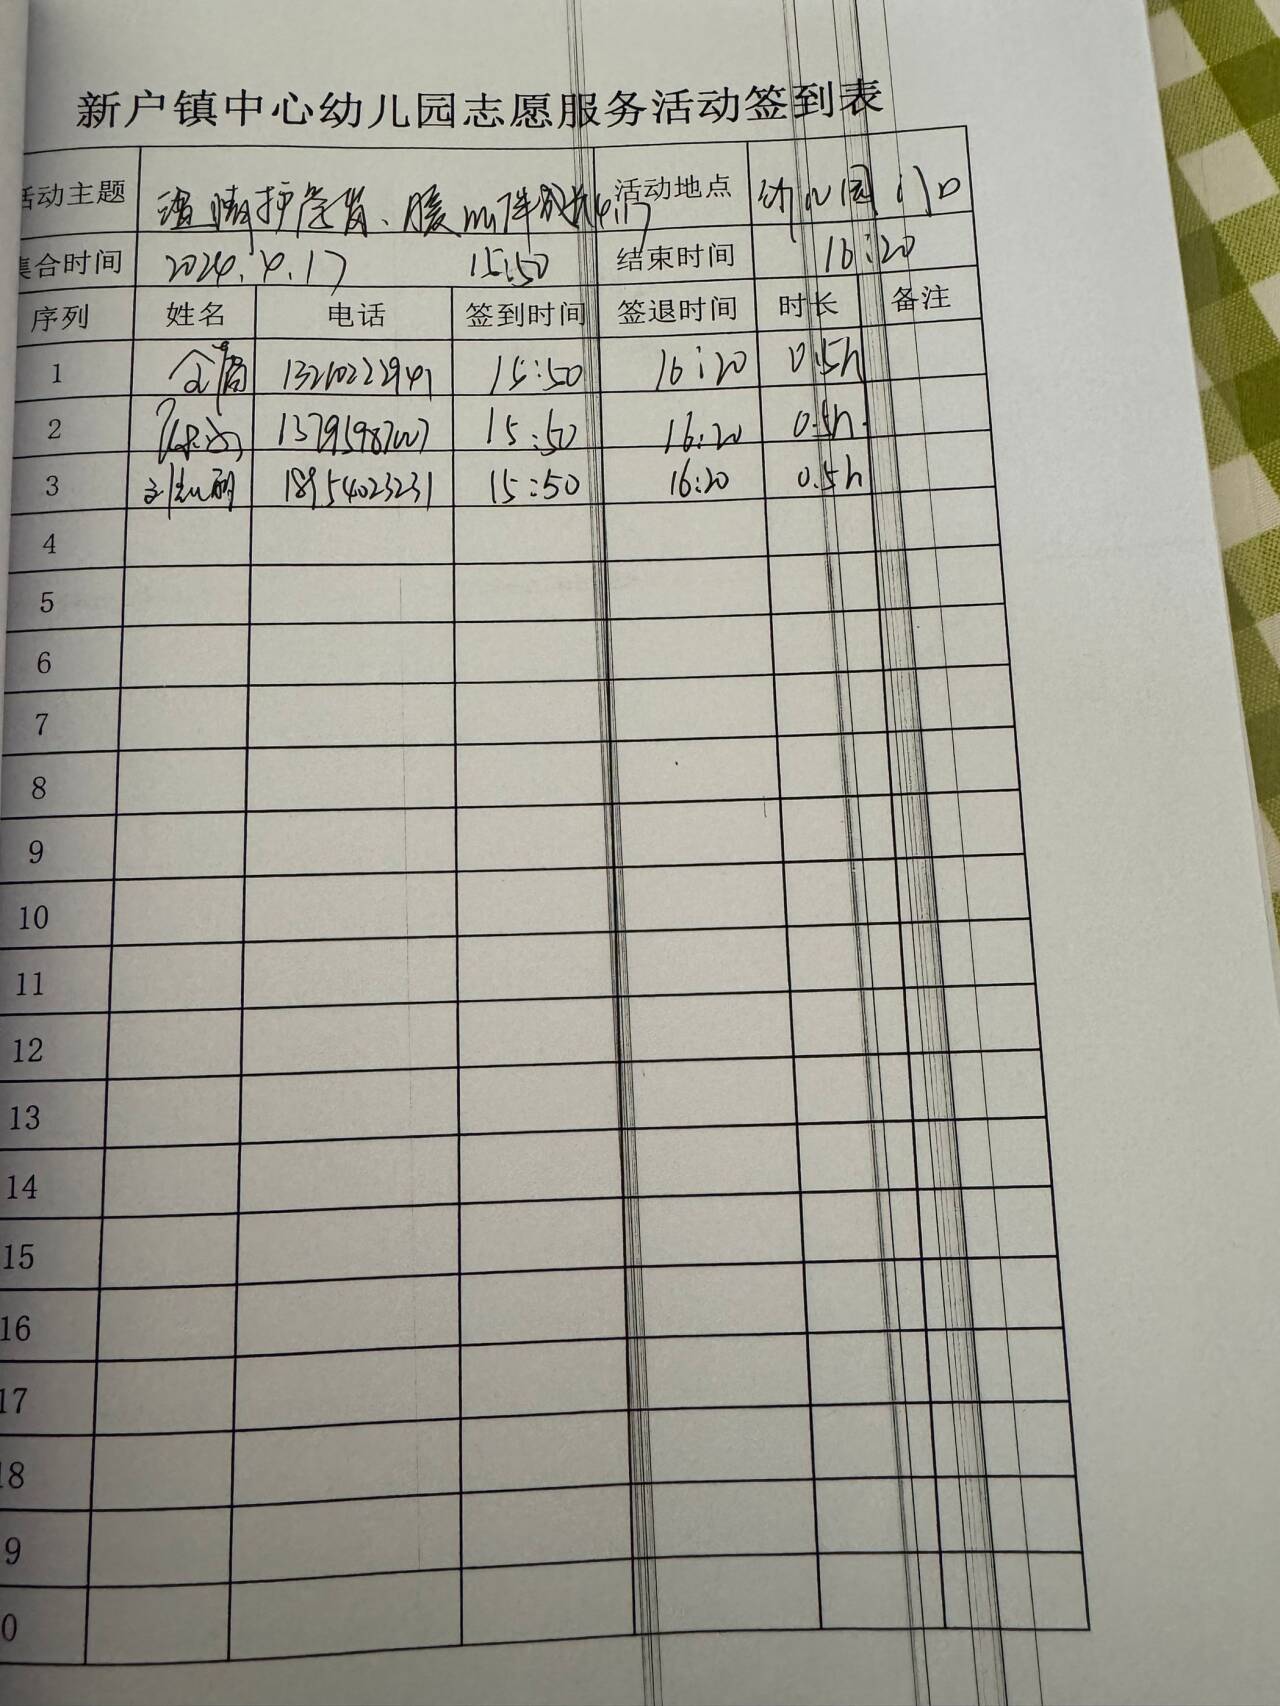 新户镇中心幼儿园志愿服务活动签到表
活动主题 护学岗、暖心伴成长 活动地点 幼儿园门口
集合时间 2024.4.17 15:50 结束时间 16:20
序列 姓名 电话 签到时间 签退时间 时长 备注
1 13210222941 15:50 16:20 0.5h
2 15:50 16:20 0.5h
3 18954023231 15:50 16:20 0.5h
4
5
6
7
8
9
10
11
12
13
14
15
16
17
18
9
0